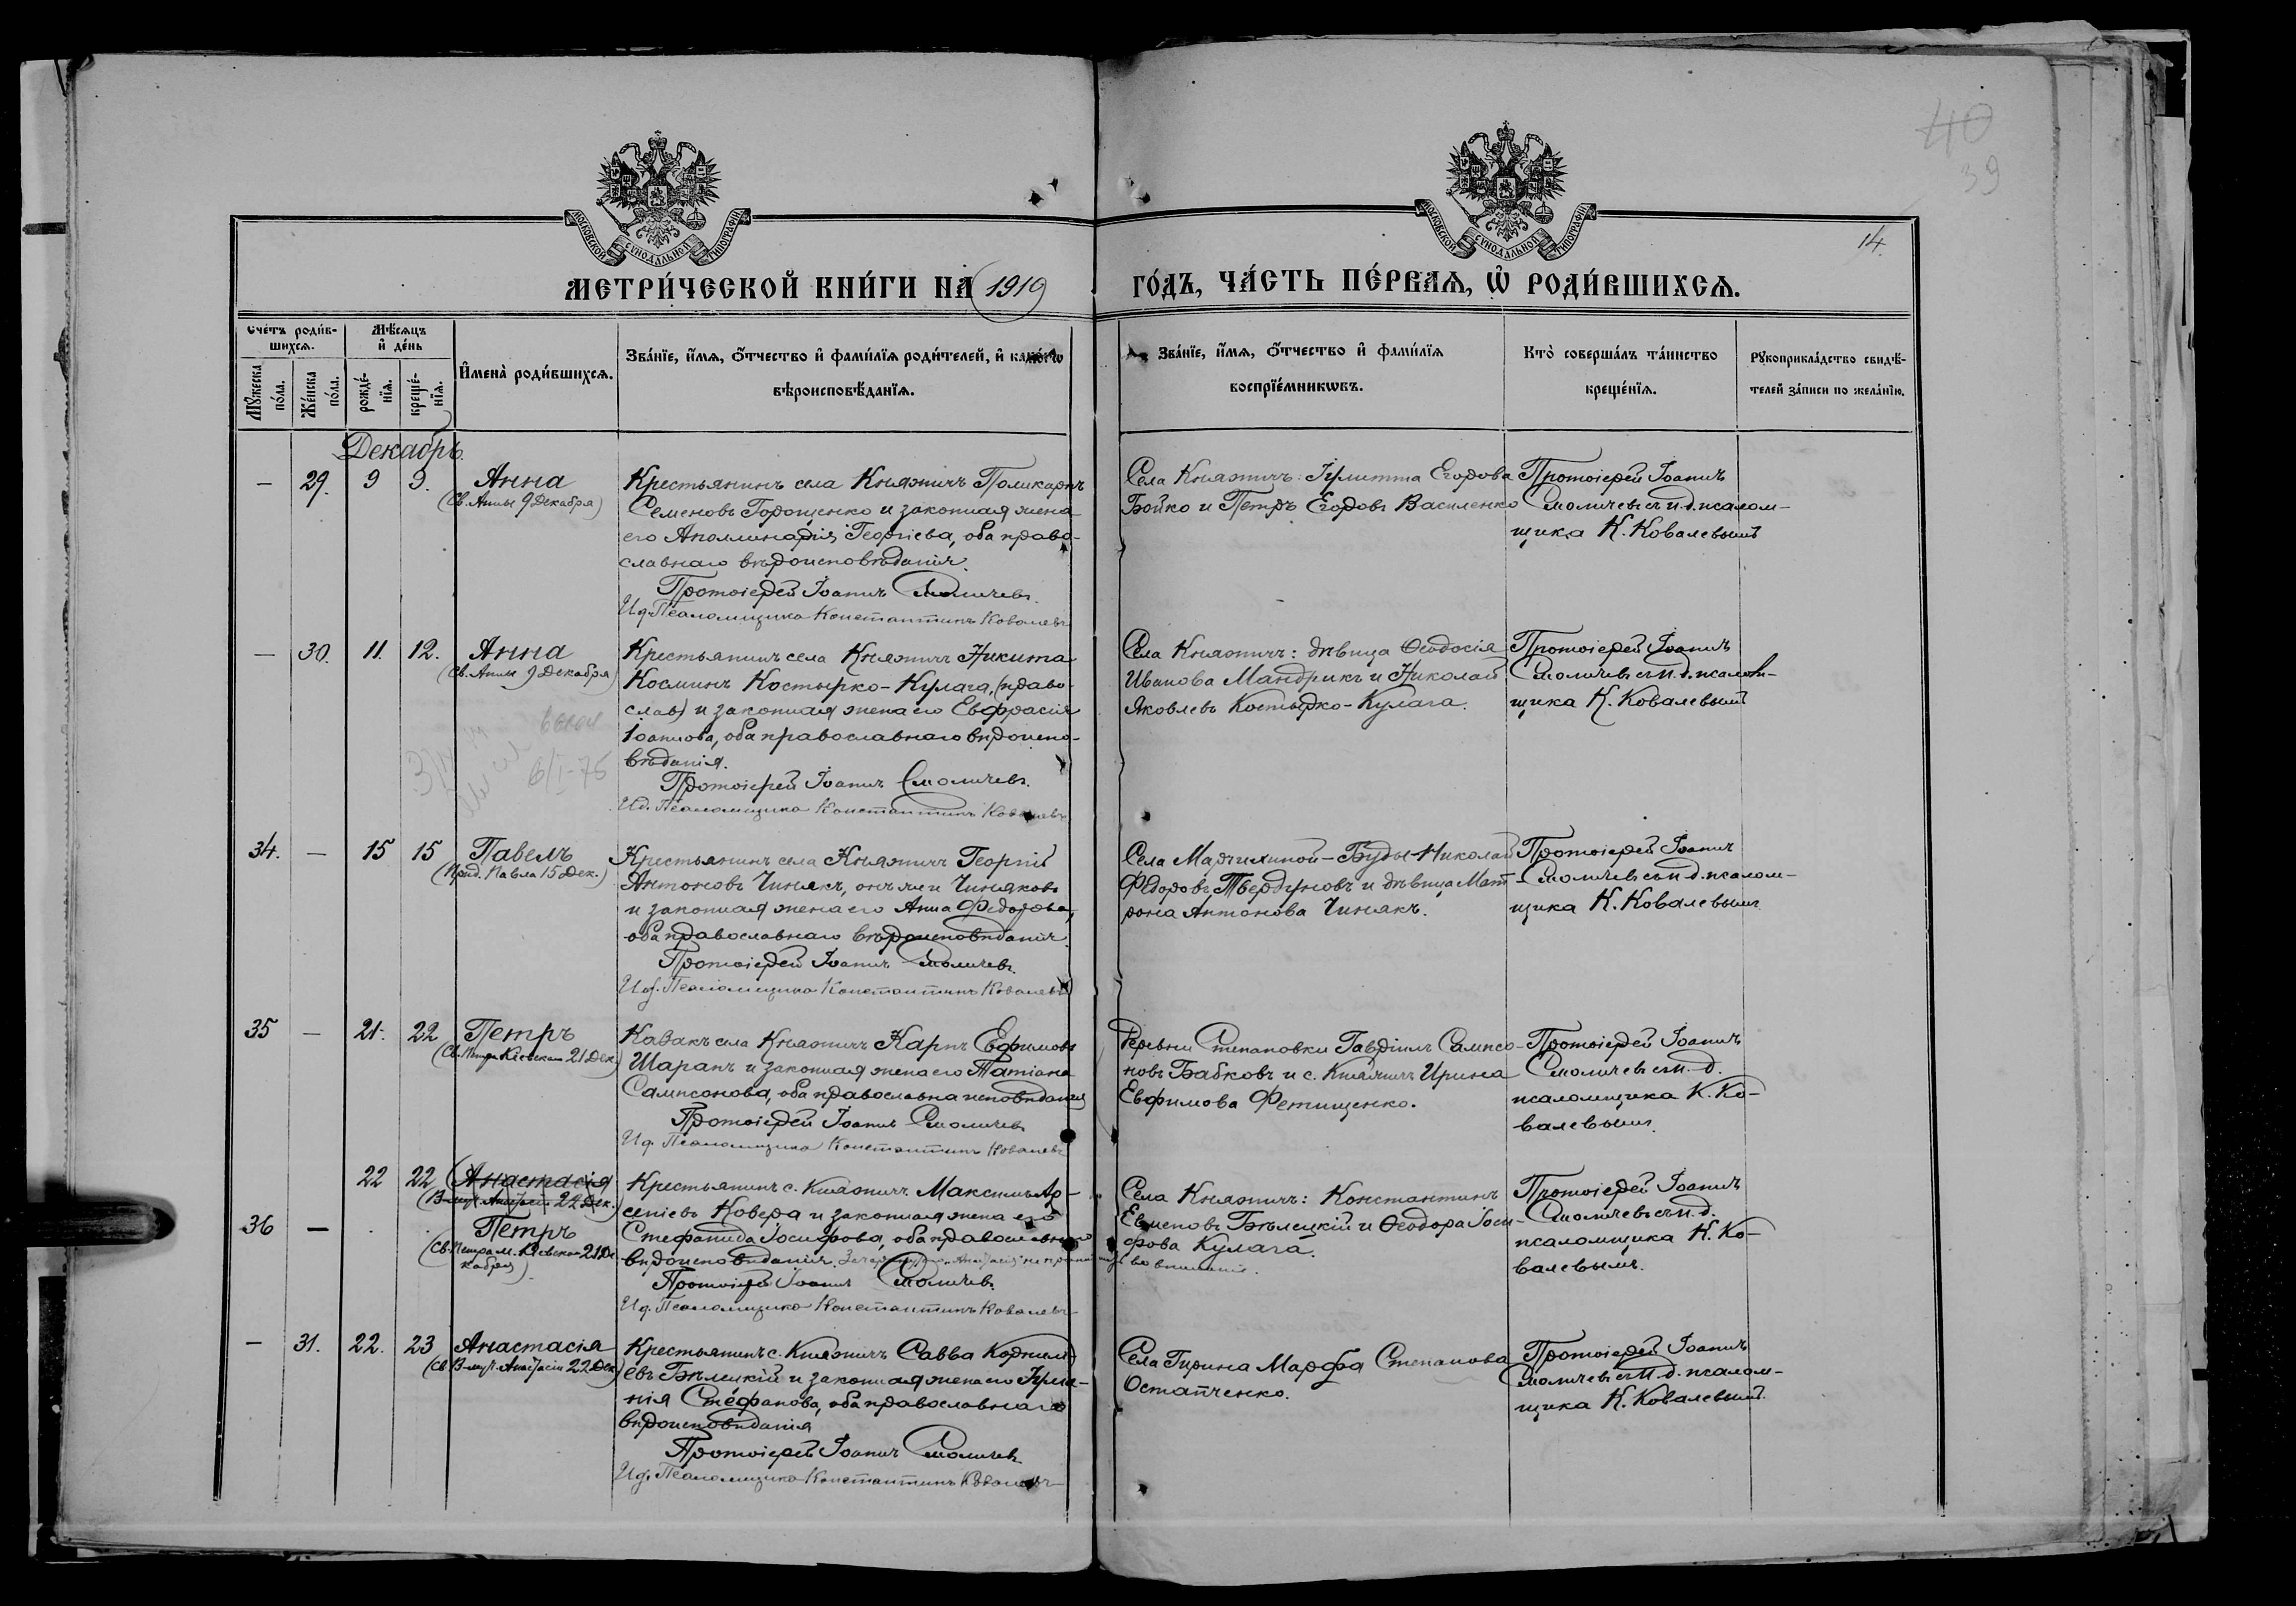 40
39
14.
МОСКОВСКОЙ СѴНОДАЛЬНОЙ ТИПОГРАФІИ
МОСКОВСКОЙ СѴНОДАЛЬНОЙ ТИПОГРАФІИ
МЕТРИ́ЧЕСКОЙ КНИ́ГИ НА 1919
ГО́ДЪ, ЧА́СТЬ ПЕ́РВАЯ, Ѡ҆ РОДИ́ВШИХСѦ.
Сче́тъ роди́в-
шихсѧ.
Мѣ́сѧцъ
и҆ де́нь
Мꙋ́жеска
по́ла.
Же́нска
по́ла.
рожде́-
нїѧ.
креще́-
нїѧ.
И҆мена̀ роди́вшихсѧ.
Зва́нїе, и҆́мѧ, ѻ҆́тчество и҆ фами́лїѧ роди́телей, и҆ како́гѡ
вѣроисповѣ́данїѧ.
Зва́нїе, и҆́мѧ, ѻ҆́тчество и҆ фами́лїѧ
воспрїе́мникѡвъ.
Кто̀ соверша́лъ та́инство
креще́нїѧ.
Рꙋкоприкла́дство свидѣ́-
телей за́писи по жела́нїю.
Декабрь.
— 29. 9 9. Анна
(Св. Анны 9 Декабря)
Крестьянинъ села Княжичъ Поликарпъ
Семеновъ Горощенко и законная жена
его Аполлинарія Георгіева, оба право-
славнаго вѣроисповѣданія.
Протоіерей Іоаннъ Смоличевъ.
И д. Псаломщика Константинъ Ковалевъ
Села Княжичъ: Іулитта Егорова
Бойко и Петръ Егоровъ Василенко
Протоіерей Іоаннъ
Смоличевъ съ и. д. псалом-
щика К. Ковалевымъ
— 30. 11. 12. Анна
(Св. Анны 9 Декабря)
Крестьянинъ села Княжичъ Никита
Косминъ Костырко-Кулага, (право-
слав) и законная жена его Евфрасія
Іоаннова, оба православнаго вѣроиспо-
вѣданія.
Протоіерей Іоаннъ Смоличевъ.
И д. Псаломщика Константинъ Ковалевъ
6/I-75
Села Княжичъ: дѣвица Ѳеодосія
Иванова Мандрикъ и Николай
Яковлевъ Костырко-Кулага.
Протоіерей Іоаннъ
Смоличевъ съ и. д. псалом-
щика К. Ковалевымъ
34. — 15 15 Павелъ
(Прп. Павла 15 Дек.)
Крестьянинъ села Княжичъ Георгій
Антоновъ Чинякъ, онъ же и Чиняковъ
и законная жена его Анна Федорова,
оба православнаго вѣроисповѣданія.
Протоіерей Іоаннъ Смоличевъ.
И д. Псаломщика Константинъ Ковалевъ
Села Марчихиной-Буды Николай
Федоровъ Твердуновъ и дѣвица Мат-
рона Антонова Чинякъ.
Протоіерей Іоаннъ
Смоличевъ съ и. д. псалом-
щика К. Ковалевымъ
35 — 21. 22 Петръ
(Св. Петра Кіевскаго 21 Дек.)
Казакъ села Княжичъ Карпъ Евфимовъ
Шарапъ и законная жена его Татіана
Сампсонова, оба православна исповѣданія
Протоіерей Іоаннъ Смоличевъ
И д. Псаломщика Константинъ Ковалевъ
Деревни Степановки Гавріилъ Сампсо-
новъ Бабковъ и с. Княжичъ Ирина
Евфимова Фетищенко.
Протоіерей Іоаннъ
Смоличевъ съ и. д.
псаломщика К. Ко-
валевымъ.
22 22 (Анастасія
(В-муч. Анастасіи 22 Дек.)
36 — Петръ
(Св. Петра м. Кіевскаго 21 Де-
кабря)
Крестьянинъ с. Княжичъ Максимъ Ар-
сеніевъ Ковера и законная жена его
Стефанида Іосифова, оба православнаго
вѣроисповѣданія. Зачеркнутое „Анастасія" не принимать во вниманіе.
Протоіерей Іоаннъ Смоличевъ.
И д. Псаломщика Константинъ Ковалевъ
Села Княжичъ: Константинъ
Евменовъ Бѣлецкій и Ѳеодора Іоси-
фова Кулага.
Протоіерей Іоаннъ
Смоличевъ съ и. д.
псаломщика К. Ко-
валевымъ.
— 31. 22. 23 Анастасія
(Св В-муч. Анастасіи 22 Дек)
Крестьянинъ с. Княжичъ Савва Корнилі-
евъ Бѣлецкій и законная жена его Іулиа-
нія Стефанова, оба православнаго
вѣроисповѣданія
Протоіерей Іоаннъ Смоличевъ
И д. Псаломщика Константинъ Ковалевъ
Села Гирина Марфа Степанова
Остапченко.
Протоіерей Іоаннъ
Смоличевъ съ и. д. псалом-
щика К. Ковалевымъ.